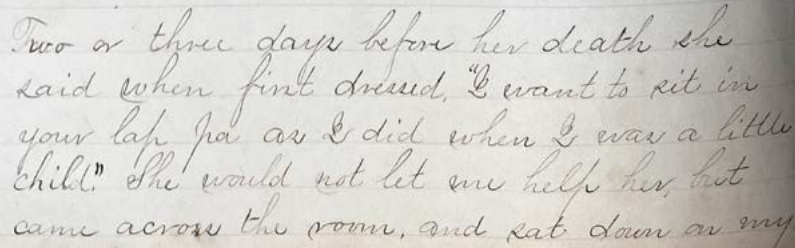 Two or three days before her death she
said when first dressed, "I want to sit in
your lap pa as I did when I was a little
child." She would not let me help her, but
came across the room, and sat down on my